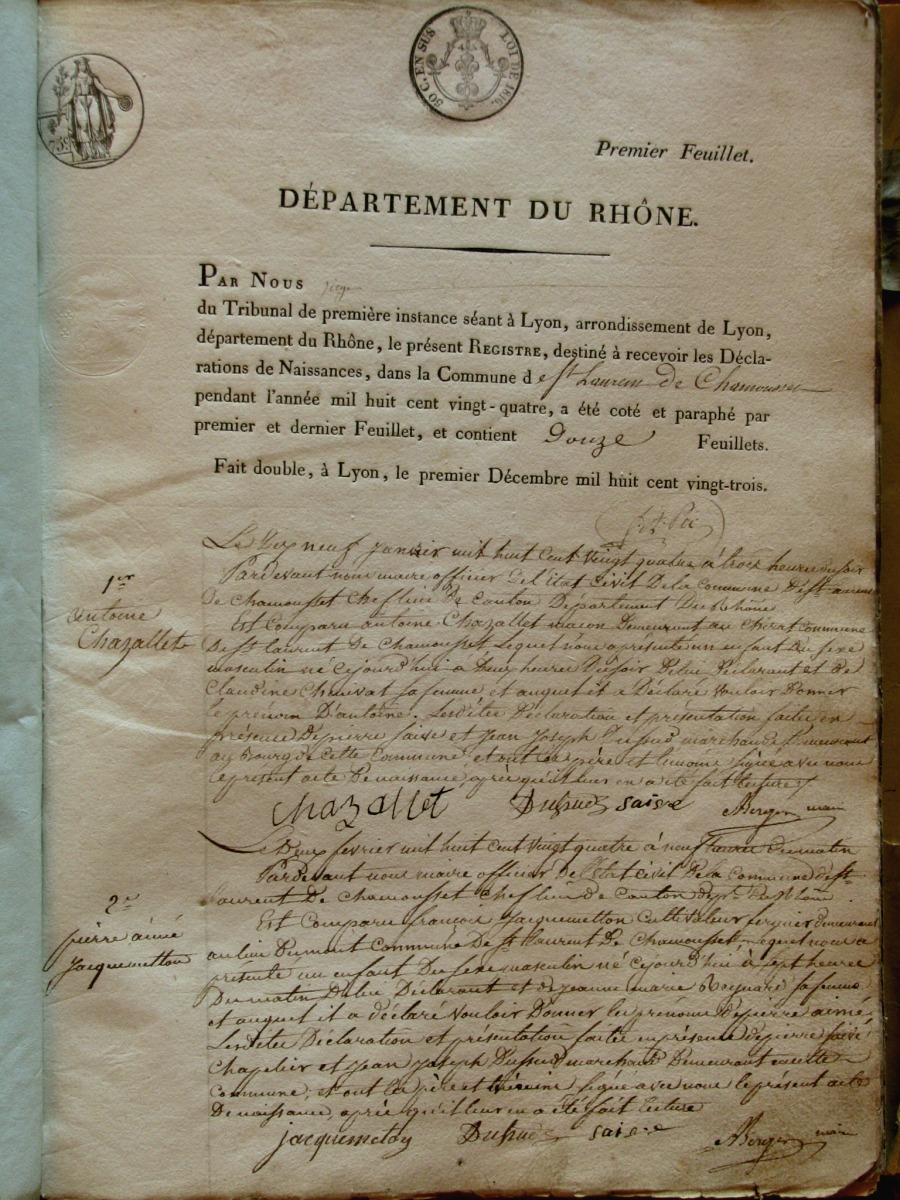 50 C. EN SUS LOI DE 1816.
759
Premier Feuillet.
DÉPARTEMENT DU RHÔNE.
PAR NOUS juge
du Tribunal de première instance séant à Lyon, arrondissement de Lyon,
département du Rhône, le présent REGISTRE, destiné à recevoir les Décla-
rations de Naissances, dans la Commune d e St Laurent De Chamousset
pendant l'année mil huit cent vingt-quatre, a été coté et paraphé par
premier et dernier Feuillet, et contient Douze Feuillets.
Fait double, à Lyon, le premier Décembre mil huit cent vingt-trois.
1er
antoine
Chazallet
Le Dix neuf janvier mil huit cent vingt quatre à trois heures du soir
Pardevant nous maire officier De l'état civil De la commune De St Laurent
De Chamousset chef lieu De canton Département Du Rhône
Est comparu antoine Chazallet maçon Demeurant au commune
De St laurent De Chamousset Lequel nous a présenté un enfant Du sexe
masculin né cejourd'hui a Deux heures Du soir De lui Déclarant et De
Claudine Chauvat sa femme et auquel il a Déclaré vouloir Donner
le prénom D'antoine. Lesdites Déclaration et présentation faites en
présence De pierre saise et jean joseph Dupué marchands Demeurant
au Bourg de cette Commune et ont les père et témoins signé avec nous
le present acte De naissance après qu'il leur en a été fait lecture
Chazallet Dupué saise ABerger maire
2e
pierre aimé
jacquemetton
Le Deux fevrier mil huit cent vingt quatre à neuf heures du matin
Pardevant nous maire officier De l'état civil De la Commune De St
Laurent De Chamousset chef lieu De canton dept. Du Rhône.
Est Comparu françois jacquemetton Cultivateur fermier Demeurant
au lieu Dumont Commune De St Laurent De Chamousset, lequel nous a
présenté un enfant Du sexe masculin né cejourd'hui à sept heures
Du matin De lui Déclarant et De jeanne marie Reynard sa femme
et auquel il a déclaré vouloir Donner les prénoms De pierre aimé,
Lesdites Déclaration et présentation faites en présence De pierre saise
Chapelier et jean joseph Dupué marchand Demeurant en cette
commune, et ont les père et témoins signé avec nous le présent acte
De naissance, après qu'il leur en a été fait lecture
jacquemeton Dupué saise ABerger maire